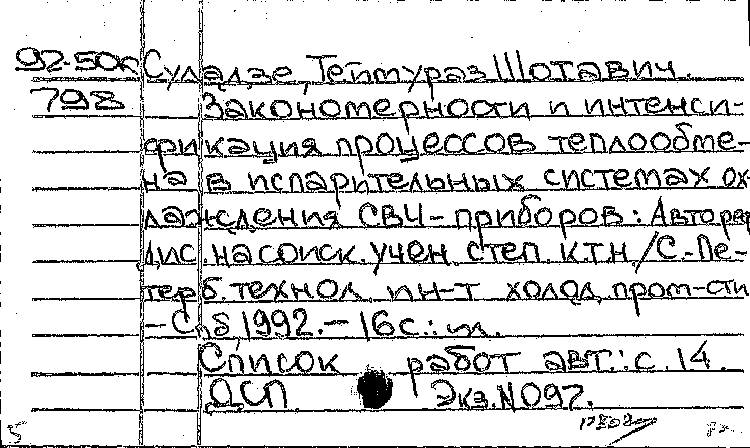 92-50к Суладзе, Теймураз Шотавич.
798 Закономерности и интенси-
фикация процессов теплообме-
на в испарительных системах ох-
лаждения СВЧ-приборов: Автореф
дис. на соиск. учен. степ. к.т.н. /С.-Пе-
терб. технол. ин-т холод. пром-сти
-Спб, 1992.- 16с.: ил.
Список работ авт.: с. 14.
ДСП Экз.N097.
5